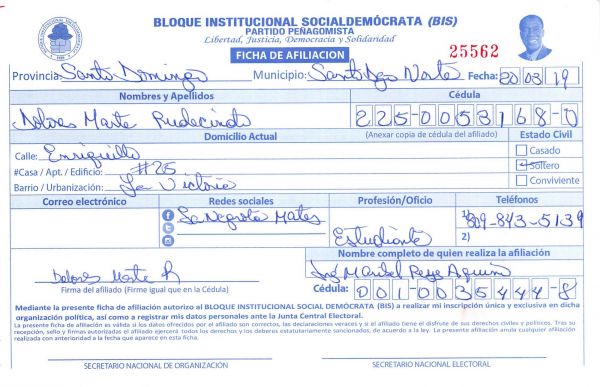 BLOQUE INSTITUCIONAL SOCIALDEMÓCRATA (BIS)
PARTIDO PEÑAGOMISTA
Libertad, Justicia, Democracia y Solidaridad
FICHA DE AFILIACION
25562
Provincia: Santo Domingo Municipio: Santo Dgo Norte Fecha: 20 03 19
Nombres y Apellidos Cédula
Dolores Marte Rudecindo 225-0053168-0
Domicilio Actual (Anexar copia de cédula del afiliado) Estado Civil
Calle: Enriquillo Casado
#Casa / Apt. / Edificio: #25 Soltero
Barrio / Urbanización: La Victoria Conviviente
Correo electrónico Redes sociales Profesión/Oficio Teléfonos
La Negrota Mates Estudiante 1) 809-843-5139
2)
Nombre completo de quien realiza la afiliación
Dolores Marte R Maribel
Firma del afiliado (Firme igual que en la Cédula) Cédula: 001-0035444-8
Mediante la presente ficha de afiliación autorizo al BLOQUE INSTITUCIONAL SOCIAL DEMÓCRATA (BIS) a realizar mi inscripción única y exclusiva en dicha
organización política, así como a registrar mis datos personales ante la Junta Central Electoral.
La presente ficha de afiliación es válida si los datos ofrecidos por el afiliado son correctos, las declaraciones veraces y si el afiliado tiene el disfrute de sus derechos civiles y políticos. Tras su
recepción, sello y firmas autorizadas el afiliado ejercerá todos los derechos y los deberes estatutariamente sancionados, de acuerdo a la ley. La presente afiliación anula cualquier afiliación
realizada con anterioridad a la fecha que aparece en esta ficha.
SECRETARIO NACIONAL DE ORGANIZACIÓN SECRETARIO NACIONAL ELECTORAL